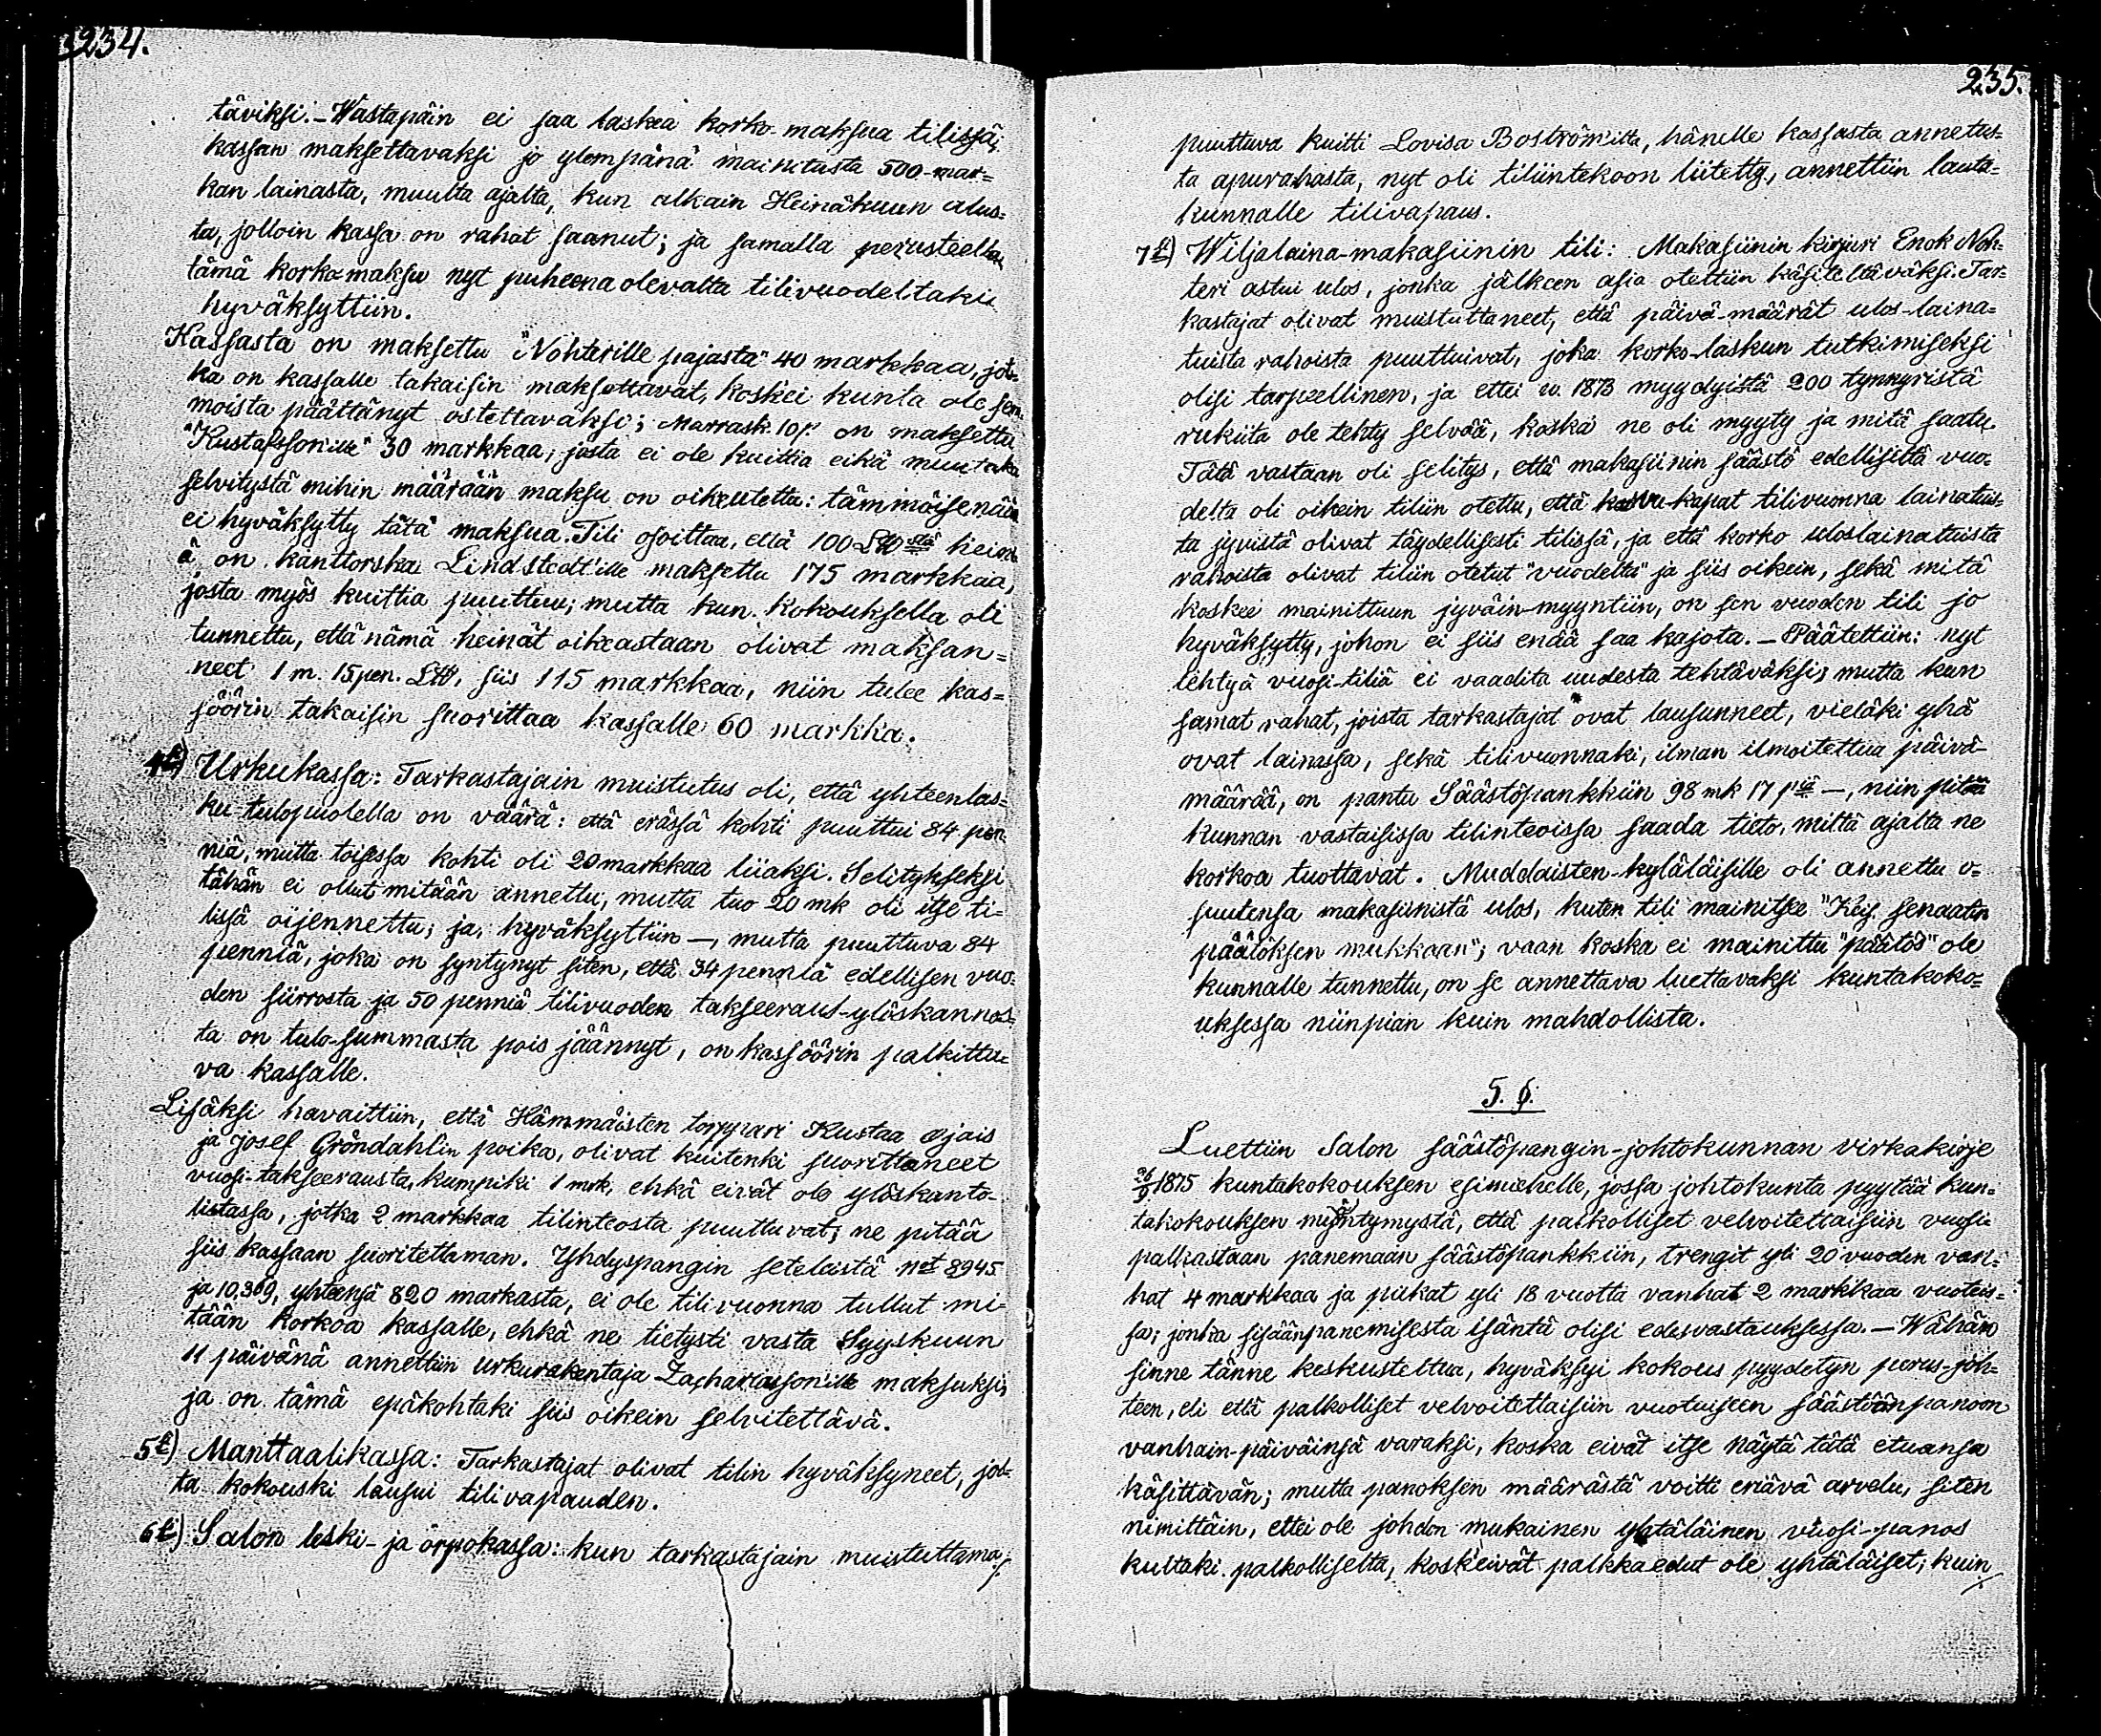 234.
täviksi. – Wastapäin ei saa laskea korko-maksua tilissä,
kassan maksettavaksi jo ylempänä mainitusta 500-mar=
kan lainasta, muulta ajalta, kun alkain Heinäkuun alus=
ta, jolloin kassa on rahat saanut; ja samalla perusteella
tämä korkomaksu nyt puheena olevalta tilivuodeltakin
hyväksyttiin.
Kassasta on maksettu "Nohterille pajasta" 40 markkaa, jot=
ka on kassalle takaisin maksettavat, koskei kunta ole sem=
moista päättänyt ostettavaksi; Marrask. 10 p. on maksettu
"Kustafsson'ille" 30 markkaa, josta ei ole kuittia eikä muutaka
selvitystä mihin määrään maksu on oikeutettu: tämmöisenään
ei hyväksytty tätä maksua. Tili osoittaa, että 100 L℔ stä heini=
ä on kanttorska Lindstedt'ille maksettu 175 markkaa,
josta myös kuittia puuttuu; mutta kun kokouksella oli
tunnettu, että nämä heinät oikeastaan olivat maksan=
neet 1 m. 15 pen. L℔, siis 115 markkaa, niin tulee kas=
söörin takaisin suorittaa kassalle 60 markka.
4si) Urkukassa: Tarkastajain muistutus oli, että yhteenlas=
ku tulopuolella on väärä: että erässä kohti puuttui 84 pen
niä, mutta toisessa kohti oli 20 markkaa liiaksi. Selitykseksi
tähän ei ollut mitään annettu, mutta tuo 20 mk oli itse ti=
lissä oijennettu; ja, hyväksyttiin –, mutta puuttuva 84
penniä, joka on syntynyt siten, että 34 penniä edellisen vuo=
den siirrosta ja 50 penniä tilivuoden takseeraus-ylöskannos=
ta on tulo-summasta pois jäännyt, on kassöörin palkittu=
va kassalle.
Lisäksi havaittiin, että Hämmäisten torppari Kustaa Ojais
ja Josef Gröndahlin poika, olivat kuitenki suorittaneet
vuosi-takseerausta, kumpiki 1 mrk, ehkä eivät ole ylöskanto-
listassa, jotka 2 markkaa tilinteosta puuttuvat; ne pitää
siis kassaan suoritettaman. Yhdyspangin seteleistä Not 8945
ja 10,369, yhteensä 820 markasta, ei ole tilivuonna tullut mi=
tään korkoa kassalle, ehkä ne tietysti vasta Syyskuun
11 päivänä annettiin urkurakentaja Zachariasson'ille maksuksi,
ja on tämä epäkohtaki siis oikein selvitettävä.
5si) Manttaalikassa: Tarkastajat olivat tilin hyväksyneet, jol=
ta kokouski lausui tilivapauden.
6si) Salon leski- ja orpokassa: kun tarkastajain muistuttama,
235.
puuttuva kuitti Lovisa Boström'iltä, hänelle kassasta annetus=
ta apurahasta, nyt oli tiliintekoon liitetty, annettiin lauta=
kunnalle tilivapaus.
7si) Wiljalaina-makasiinin tili: Makasiinin kirjuri Enok Noh=
teri astui ulos, jonka jälkeen asia otettiin käsiteltäväksi. Tar=
kastajat olivat muistuttaneet, että päivä-määrät ulos-laina=
tuista rahoista puuttuivat, joka korko-laskun tutkimiseksi
olisi tarpeellinen, ja ettei v. 1873 myydyistä 200 tynnyristä
rukiita ole tehty selvää, koska ne oli myyty ja mitä saatu.
Tätä vastaan oli selitys, että makasiinin säästö edellisiltä vuo=
delta oli oikein tiliin otettu, että kasvu-kapat tilivuonna lainatuis=
ta jyvistä olivat täydellisesti tilissä, ja että korko uloslainatuista
rahoista olivat tiliin otetut "vuodelta" ja siis oikein, sekä mitä
koskee mainittuun jyväin-myyntiin, on sen vuoden tili jo
hyväksytty, johon ei siis enää saa kajota. – Päätettiin: nyt
tehtyä vuosi-tiliä ei vaadita uudesta tehtäväksi; mutta kun
samat rahat, joista tarkastajat ovat lausunneet, vieläki yhä
ovat lainassa, sekä tilivuonnaki, ilman ilmoitettua päivä-
määrää, on pantu Säästöpankkiin 98 mk 17 piä –, niin pitää
kunnan vastaisissa tilinteoissa saada tieto, miltä ajalta ne
korkoa tuottavat. Muddaisten-kyläläisille oli annettu o=
suutensa makasiinistä ulos, kuten tili mainitsee "Keis. senaatin
päätöksen mukkaan"; vaan koska ei mainittu "päätös" ole
kunnalle tunnettu, on se annettava luettavaksi kuntakoko=
uksessa niinpian kuin mahdollista.
5. §.
Luettiin Salon säästöpangin-johtokunnan virkakirje
26/9 1875 kuntakokouksen esimiehelle, jossa johtokunta pyytää kun=
takokouksen myöntymystä, että palkolliset velvoitettaisiin vuosi-
palkastaan panemaan säästöpankkiin, trengit yli 20 vuoden van=
hat 4 markkaa ja piikat yli 18 vuotta vanhat 2 markkaa vuoteis=
sa; jonka sisäänpanemisesta isäntä olisi edesvastauksessa. – Wähän
sinne tänne keskusteltua, hyväksyi kokous pyydetyn perus-joh=
teen, eli että palkolliset velvoitettaisiin vuotuiseen säästöönpanoon
vanhain-päiväinsä varaksi, koska eivät itse näytä tätä etuansa
käsittävän; mutta panoksen määrästä voitti eriävä arvelu, siten
nimittäin, ettei ole johdon mukainen yhtäläinen vuosi-panos
kultaki palkolliselta, koskeivät palkkaedut ole yhtäläiset; kuin